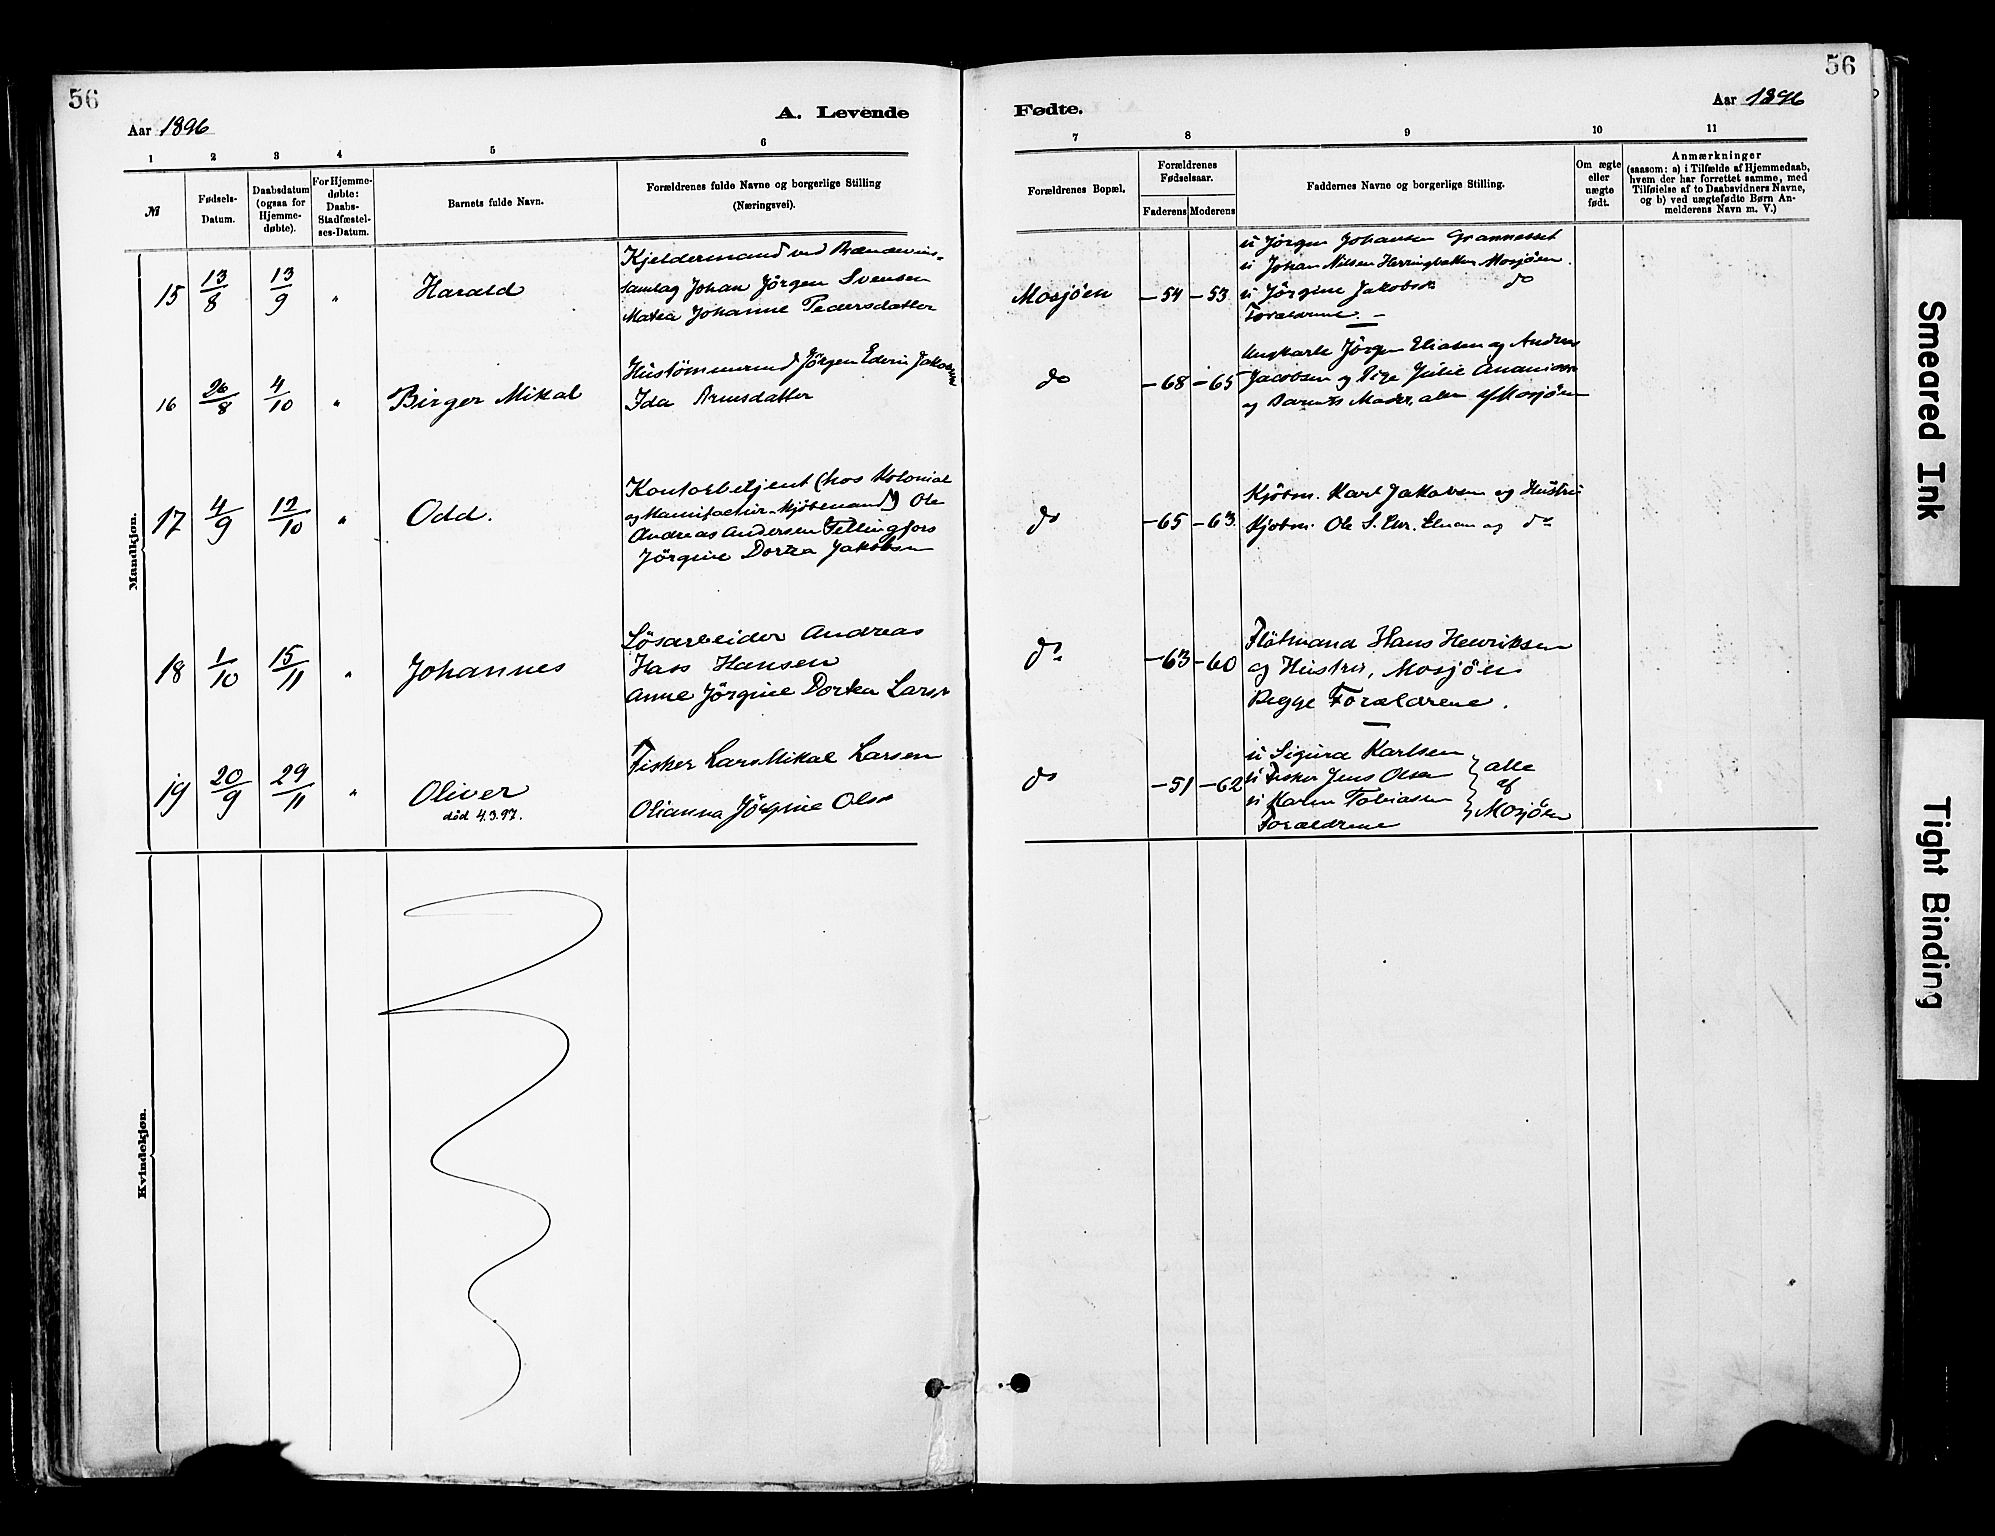 56
Aar 1896
A. Levende
1 2 3 4 5 6
№
Fødsels-
Datum.
Daabsdatum
(ogsaa for
Hjemme-
døbte).
For Hjemme-
døbte:
Daabs-
Stadfæstel-
ses-Datum.
Barnets fulde Navn.
Forældrenes fulde Navne og borgerlige Stilling
(Næringsvei).
Mandkjøn.
15 13/8 13/9 " Harald
Kjeldermand ved Brændevins-
samlag Johan Jörgen Svensen
Johanne Pedersdatter
16 26/8 4/10 " Birger Mikal
Hustömmermand Jörgen Edvin Jakobsen
Ida
17 4/9 12/10 " Odd.
Kontorbetjent (hos Kolonial
og Manufactur-Kjöbmand) Ole
Andreas Andersen Fellingfors
Jörgine Dortea Jakobsen
18 1/10 15/11 " Johannes
Lösarbeider Andreas
Hass Hansen
Anne Jörgine Dortea Larsr
19 20/9 29/11 " Oliver
död 4.3.97.
Fisker Lars Mikal Larsen
Olianna Jörgine Olsr
Kvindekjøn.
56
Fødte.
Aar 1896
7 8 9 10 11
Forældrenes Bopæl.
Forældrenes
Fødselsaar.
Faderens Moderens
Faddernes Navne og borgerlige Stilling.
Om ægte
eller
uægte
født.
Anmærkninger
(saasom: a) i Tilfælde af Hjemmedaab,
hvem der har forrettet samme, med
Tilføielse af to Daabsvidners Navne,
og b) ved uægtefødte Børn An-
melderens Navn m. V.)
Mosjöen -54 -53
u Jörgen Johansen Grannesset
u Johan Nilsen Herringbotten Mosjöen.
u Jörgine Jakobsr do
Forældrene.
do -68 -65
Ungkarle Jörgen Eliasen og Anders
Jacobsen og Pige Julie
og Barnets Moder, alle af Mosjöen
do -65 -63
Kjöbm. Karl Jakobsen og Hustru
Kjöbm. Ole S. og do
do -63 -60
Flötmand Hans Henriksen
og Hustru, Mosjöen
Begge Forældrene.
do -51 -62
u Sigurd Karlsen
u Fisker Jens Olsen
u Karen Tobiasen
Forældrene
alle
af
Mosjöen
Smeared Ink
Tight Binding